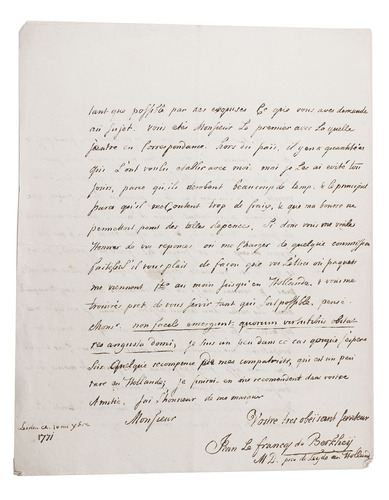 tant que possible par des exquises Ce que vous avez demandé
au sujet. vous etes Monsieur Le premier avec La quelle
j'entre en Correspondance. hors du païs, il y en a quantité
qui L'ont voulu etablir avec moi, mais je Les ai evité tou
jours, parce qu'ils derobent beaucoup de temp. & le principal
parce qu'il me Content trop de fraix, & que ma bourse ne
permettent point des telles depences. Si donc vous me voulez
honnorer de vos reponces ou me Charger de quelque commission
faites s'il vous plait de façon que vos Lettres ou paquets
me viennent au moin jusqu'en Hollande, & vous me
trouverez pret de vous servir tant qu'il soit possible. pensé
Mons. non facile emergunt, quorum virtutibus obstat
res angusta domi, je suis un peu dans ce cas quoique j'espere
sur quelque recompense de mes compatriotes, qui est un peu
rare en Hollande; je finirai en me recommendant dans votre
Amitié. J'ai L'honneur de me nommer
Monsieur
Votre tres obeisant serviteur
Jean Le francq de Berkheij
M.D. pres de Leyde en Hollande
Leiden ce 10 m 9bre
1771